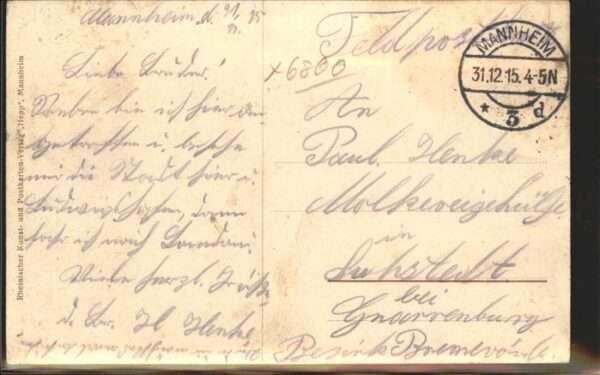 Mannheim, d. 31. 12. 15
Liebe Brüder!
Soeben bin ich hier
eingetroffen u. besehe
mir die Stadt hier u.
Ludwigshafen, dann
fahre ich nach Landau.
Viele herzl. Grüße
d. Br. H. Henke
Rheinischer Kunst- und Postkarten-Verlag „Hepp", Mannheim
Feldpost
x6800
MANNHEIM
31.12.15. 4-5N
* 3 d
An
Paul Henke
Molkereigehülfe
in
Luhstedt
bei
Gnarrenburg
Bezirk Bremervörde